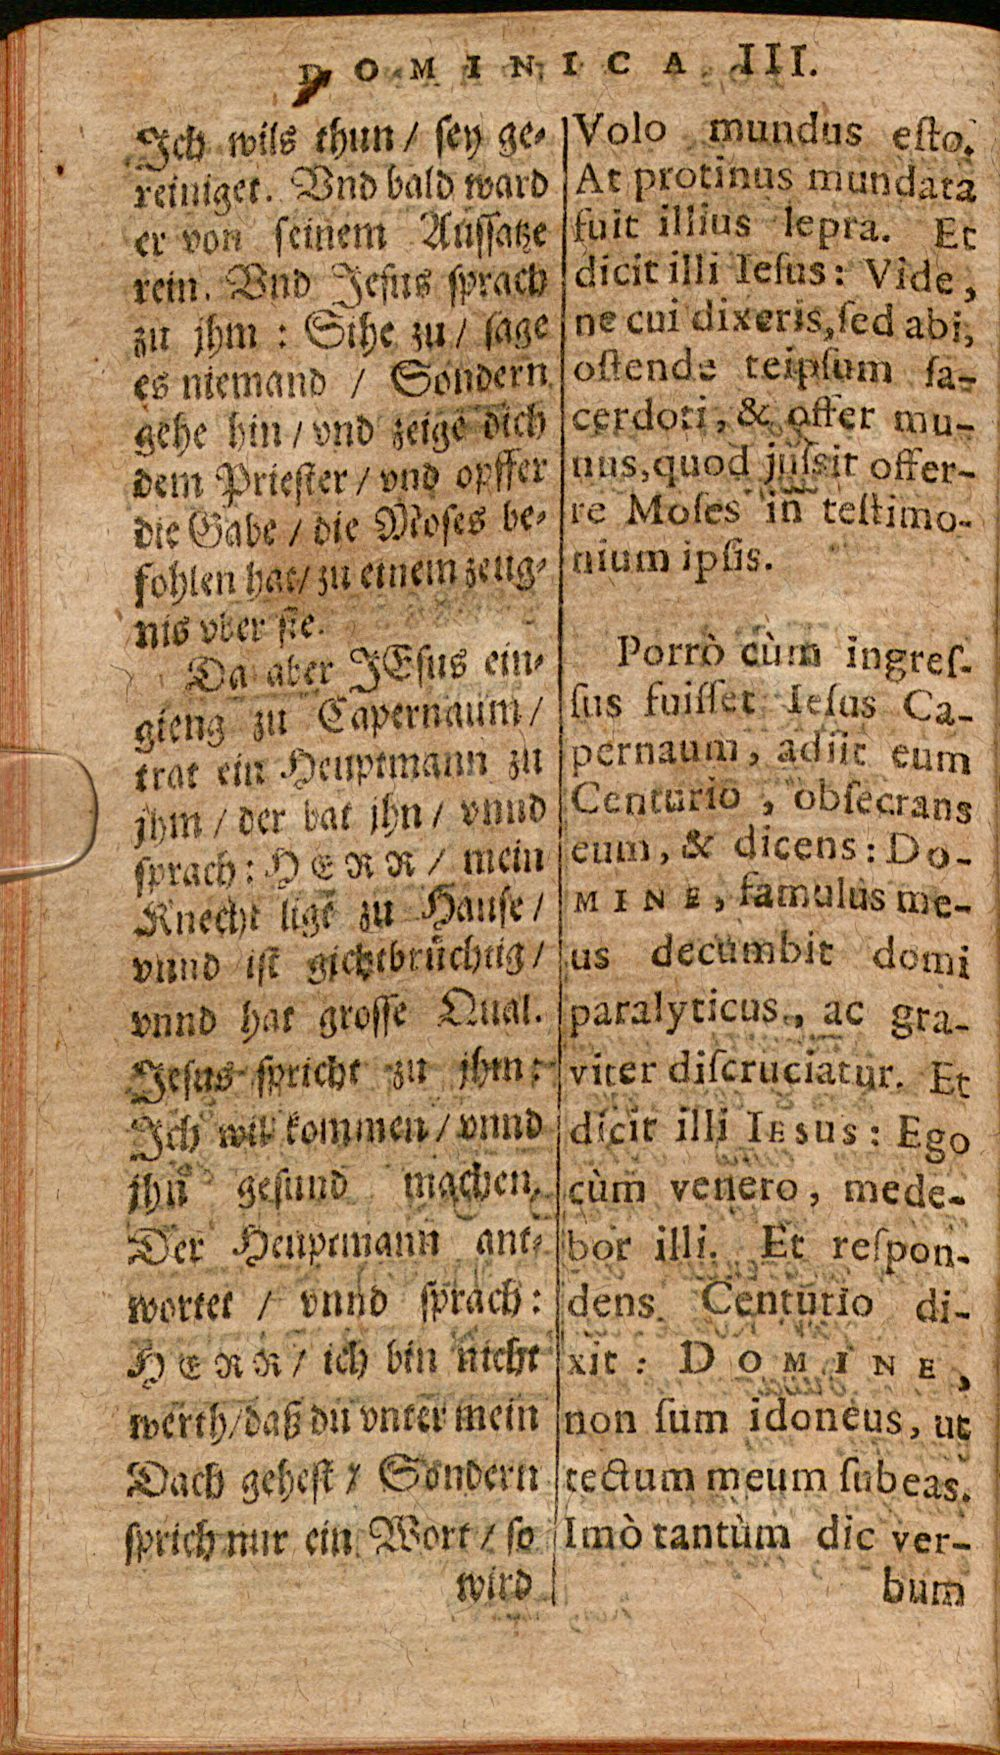 DOMINICA III.
Ich wils thun / sey ge-
reiniget. Vnd bald ward
er von seinem Aussatze
rein. Vnd Jesus sprach
zu jhm : Sihe zu / sage
es niemand / Sondern
gehe hin / vnd zeige dich
dem Priester / vnd opffer
die Gabe / die Moses be-
fohlen hat / zu einem zeug-
nis vber sie.
Da aber JEsus ein-
gieng zu Capernaum /
trat ein Heuptmann zu
jhm / der bat jhn / vnnd
sprach : HERR / mein
Knecht ligt zu Hause /
vnnd ist gichtbrüchtig /
vnnd hat grosse Qual.
Jesus spricht zu jhm :
Ich wil kommen / vnnd
jhn gesund machen.
Der Heuptmann ant-
wortet / vnnd sprach :
HERR / ich bin nicht
werth / daß du vnter mein
Dach gehest / Sondern
sprich nur ein Wort / so
wird
Volo mundus eſto.
At protinus mundata
fuit illius lepra. Et
dicit illi Ieſus: Vide,
ne cui dixeris, ſed abi,
oſtende teipſum ſa-
cerdoti, & offer mu-
nus, quod juſsit offer-
re Moſes in teſtimo-
nium ipſis.
Porrò cùm ingreſ-
ſus fuiſſet Ieſus Ca-
pernaum, adiit eum
Centurio, obſecrans
eum, & dicens: Do-
MINE, famulus me-
us decumbit domi
paralyticus, ac gra-
viter diſcruciatur. Et
dicit illi IESUS: Ego
cùm venero, mede-
bor illi. Et reſpon-
dens Centurio di-
xit: DOMINE,
non ſum idoneus, ut
tectum meum ſubeas.
Imò tantùm dic ver-
bum